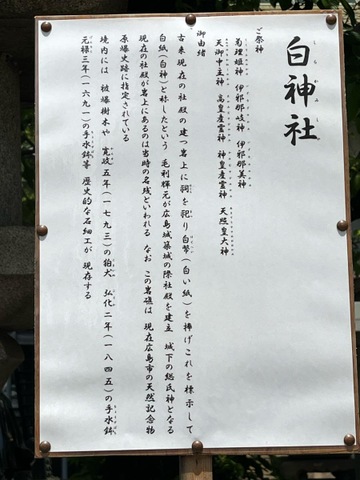 白神社
しらかみしゃ
ご祭神
菊理姫神 伊邪那岐神 伊邪那美神
天御中主神 高皇産霊神 神皇産霊神 天照皇大神
御由緒
古来現在の社殿の建つ岩上に祠を祀り白幣(白い紙)を捧げこれを標示して
白紙(白神)と称したという 毛利輝元が広島城築城の際社殿を建立 城下の総氏神となる
現在の社殿が岩上にあるのは当時の名残といわれる なお この岩礁は 現在広島市の天然記念物
原爆史跡に指定されている
境内には 被爆樹木や 寛政五年(一七九三)の狛犬 弘化二年(一八四五)の手水鉢
元禄三年(一六九一)の手水鉢等 歴史的な石細工が 現存する